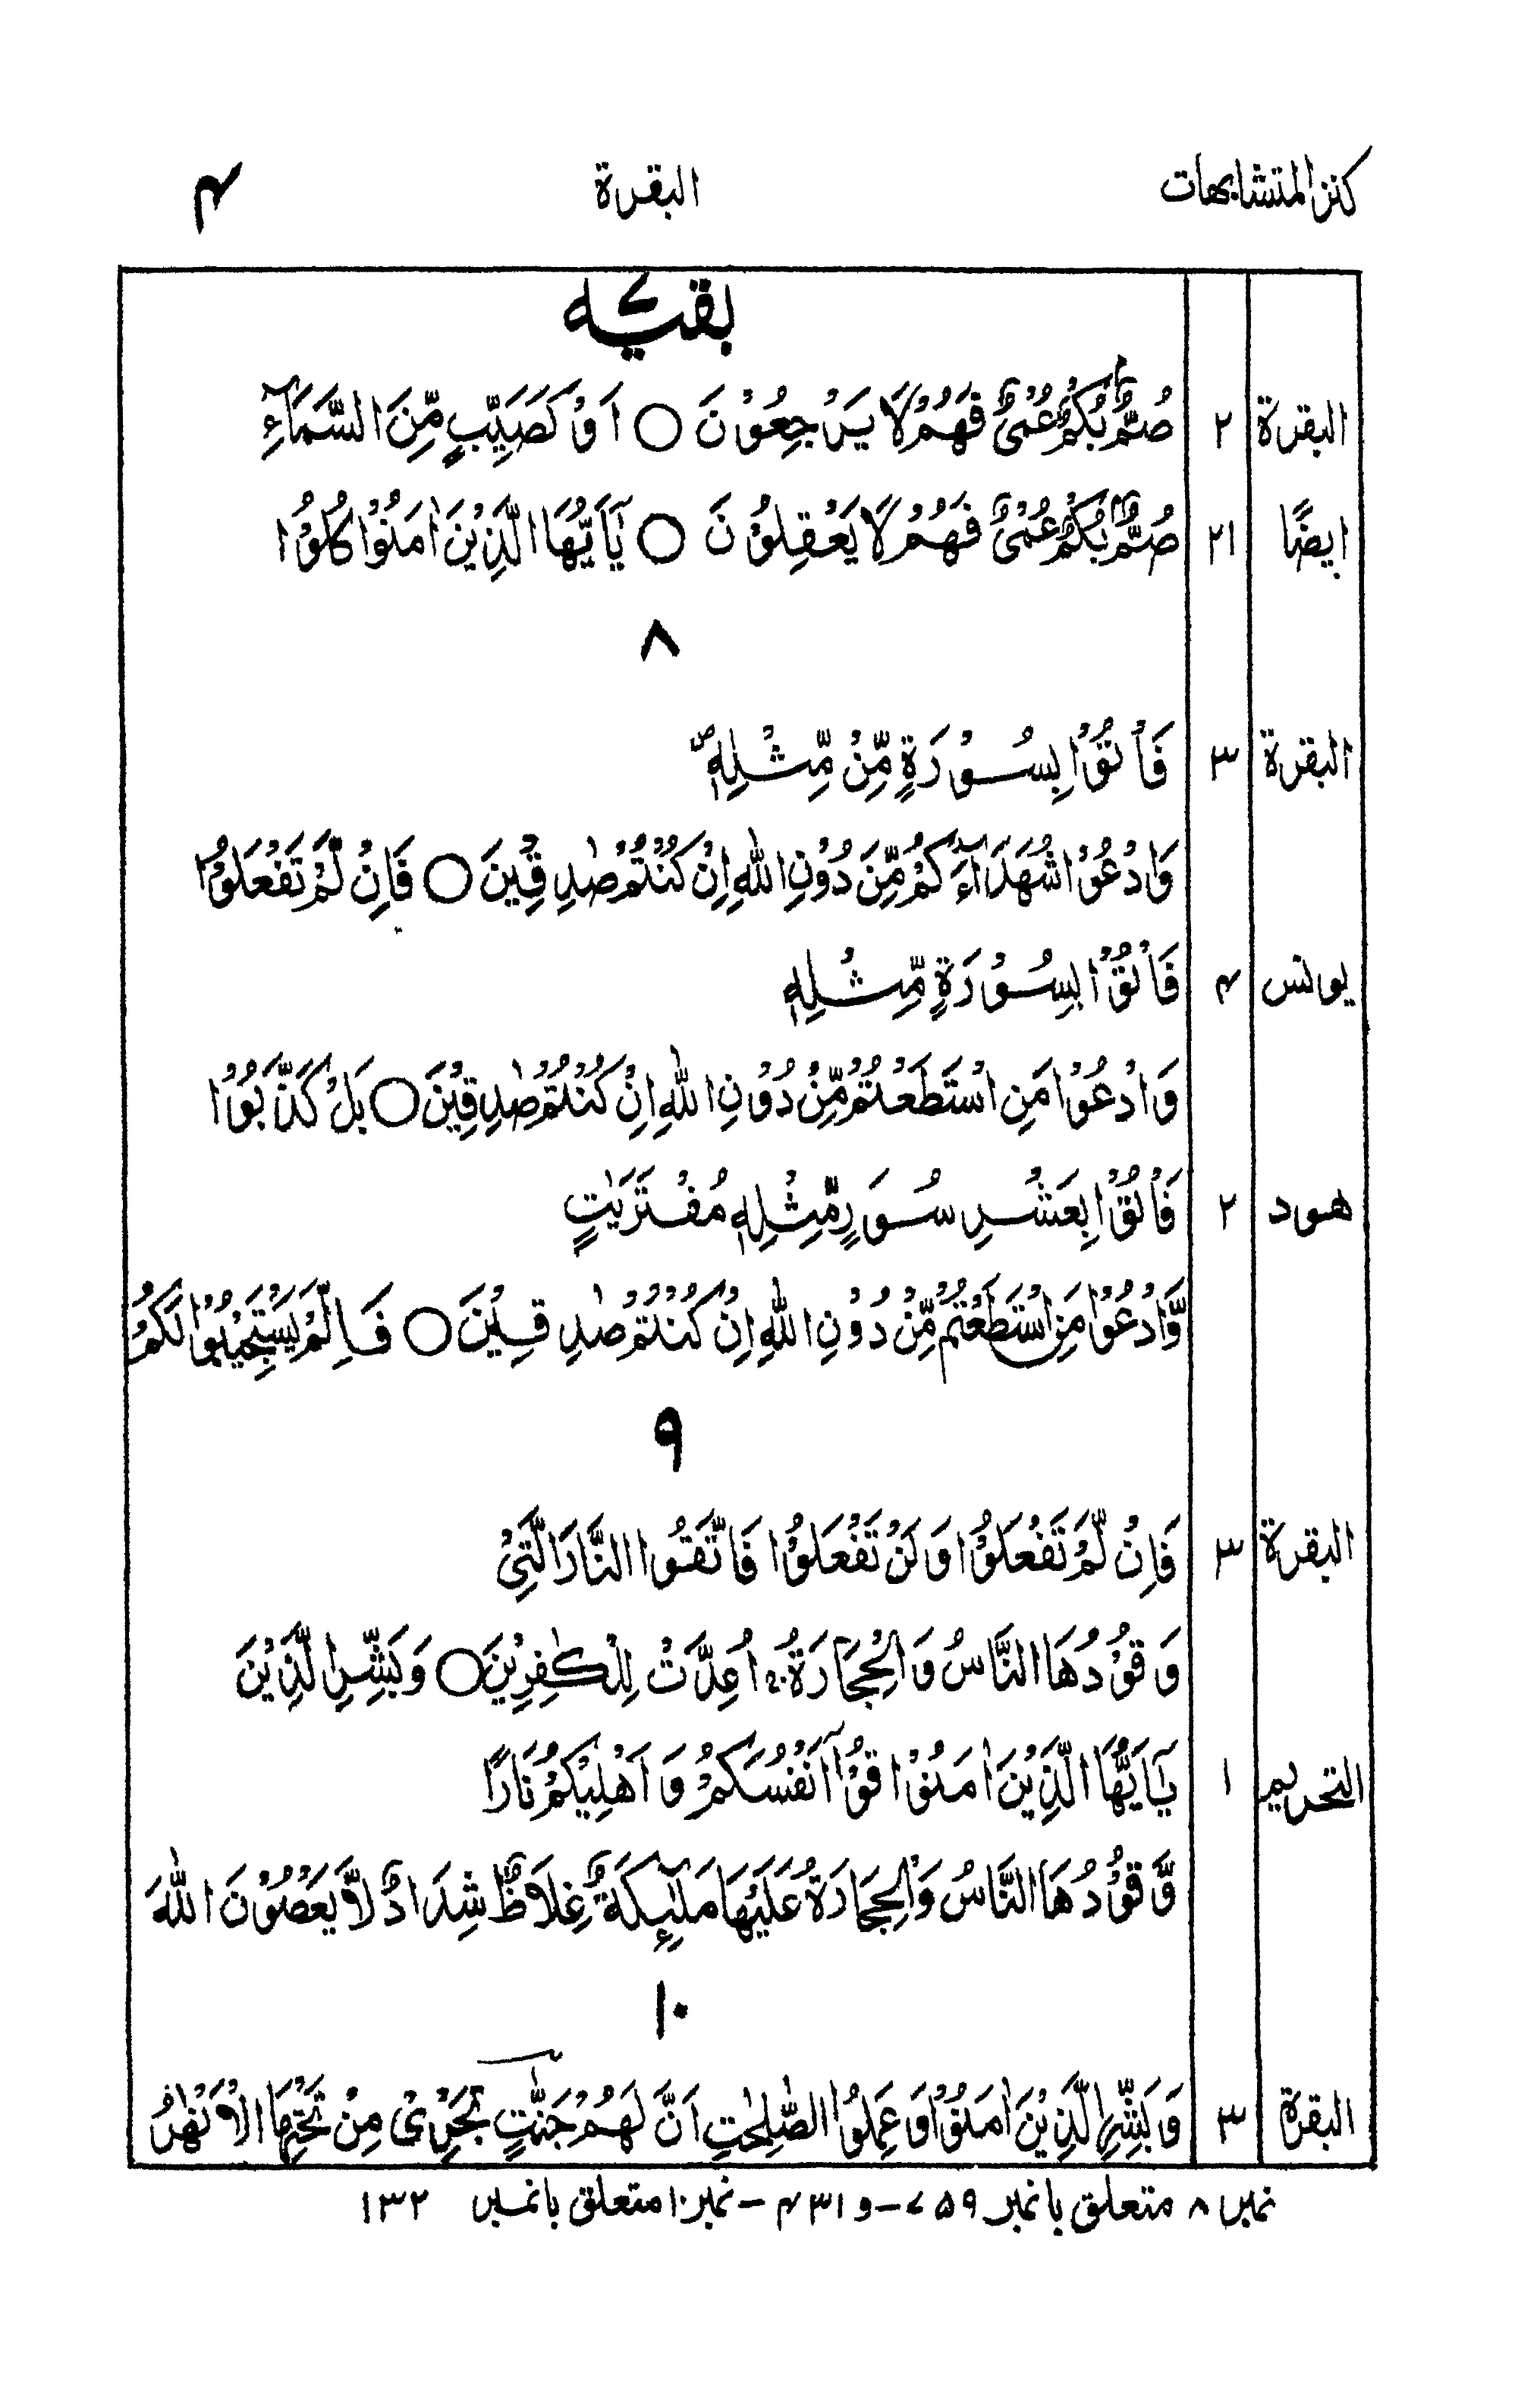 كنز المتشابهات البقرة ۴
بقیہ ۷
البقرة ۲ صُمٌّۢ بُكْمٌ عُمْیٌ فَهُمْ لَا یَرْجِعُوْنَ ○ اَوْ كَصَیِّبٍ مِّنَ السَّمَآءِ
ایضًا ۲۱ صُمٌّۢ بُكْمٌ عُمْیٌ فَهُمْ لَا یَعْقِلُوْنَ ○ یٰۤاَیُّهَا الَّذِیْنَ اٰمَنُوْا كُلُوْا
۸
البقرة ۳ فَاْتُوْا بِسُوْرَةٍ مِّنْ مِّثْلِهٖ۪
وَادْعُوْا شُهَدَآءَكُمْ مِّنْ دُوْنِ اللّٰهِ اِنْ كُنْتُمْ صٰدِقِیْنَ ○ فَاِنْ لَّمْ تَفْعَلُوْا
یونس ۴ فَاْتُوْا بِسُوْرَةٍ مِّثْلِهٖ
وَادْعُوْا مَنِ اسْتَطَعْتُمْ مِّنْ دُوْنِ اللّٰهِ اِنْ كُنْتُمْ صٰدِقِیْنَ ○ بَلْ كَذَّبُوْا
هود ۲ فَاْتُوْا بِعَشْرِ سُوَرٍ مِّثْلِهٖ مُفْتَرَیٰتٍ
وَّادْعُوْا مَنِ اسْتَطَعْتُمْ مِّنْ دُوْنِ اللّٰهِ اِنْ كُنْتُمْ صٰدِقِیْنَ ○ فَاِلَّمْ یَسْتَجِیْبُوْا لَكُمْ
۹
البقرة ۳ فَاِنْ لَّمْ تَفْعَلُوْا وَلَنْ تَفْعَلُوْا فَاتَّقُوا النَّارَ الَّتِیْ
وَقُوْدُهَا النَّاسُ وَالْحِجَارَةُ ۚۖ اُعِدَّتْ لِلْكٰفِرِیْنَ ○ وَبَشِّرِ الَّذِیْنَ
التحریم ۱ یٰۤاَیُّهَا الَّذِیْنَ اٰمَنُوْا قُوْۤا اَنْفُسَكُمْ وَاَهْلِیْكُمْ نَارًا
وَّقُوْدُهَا النَّاسُ وَالْحِجَارَةُ عَلَیْهَا مَلٰٓىِٕكَةٌ غِلَاظٌ شِدَادٌ لَّا یَعْصُوْنَ اللّٰهَ
۱۰
البقرة ۳ وَبَشِّرِ الَّذِیْنَ اٰمَنُوْا وَعَمِلُوا الصّٰلِحٰتِ اَنَّ لَهُمْ جَنّٰتٍ تَجْرِیْ مِنْ تَحْتِهَا الْاَنْهٰرُ
نمبر ۸ متعلق با نمبر ۷۵۹ - و ۴۳۱ - نمبر ۱۰ متعلق با نمبر ۱۳۲